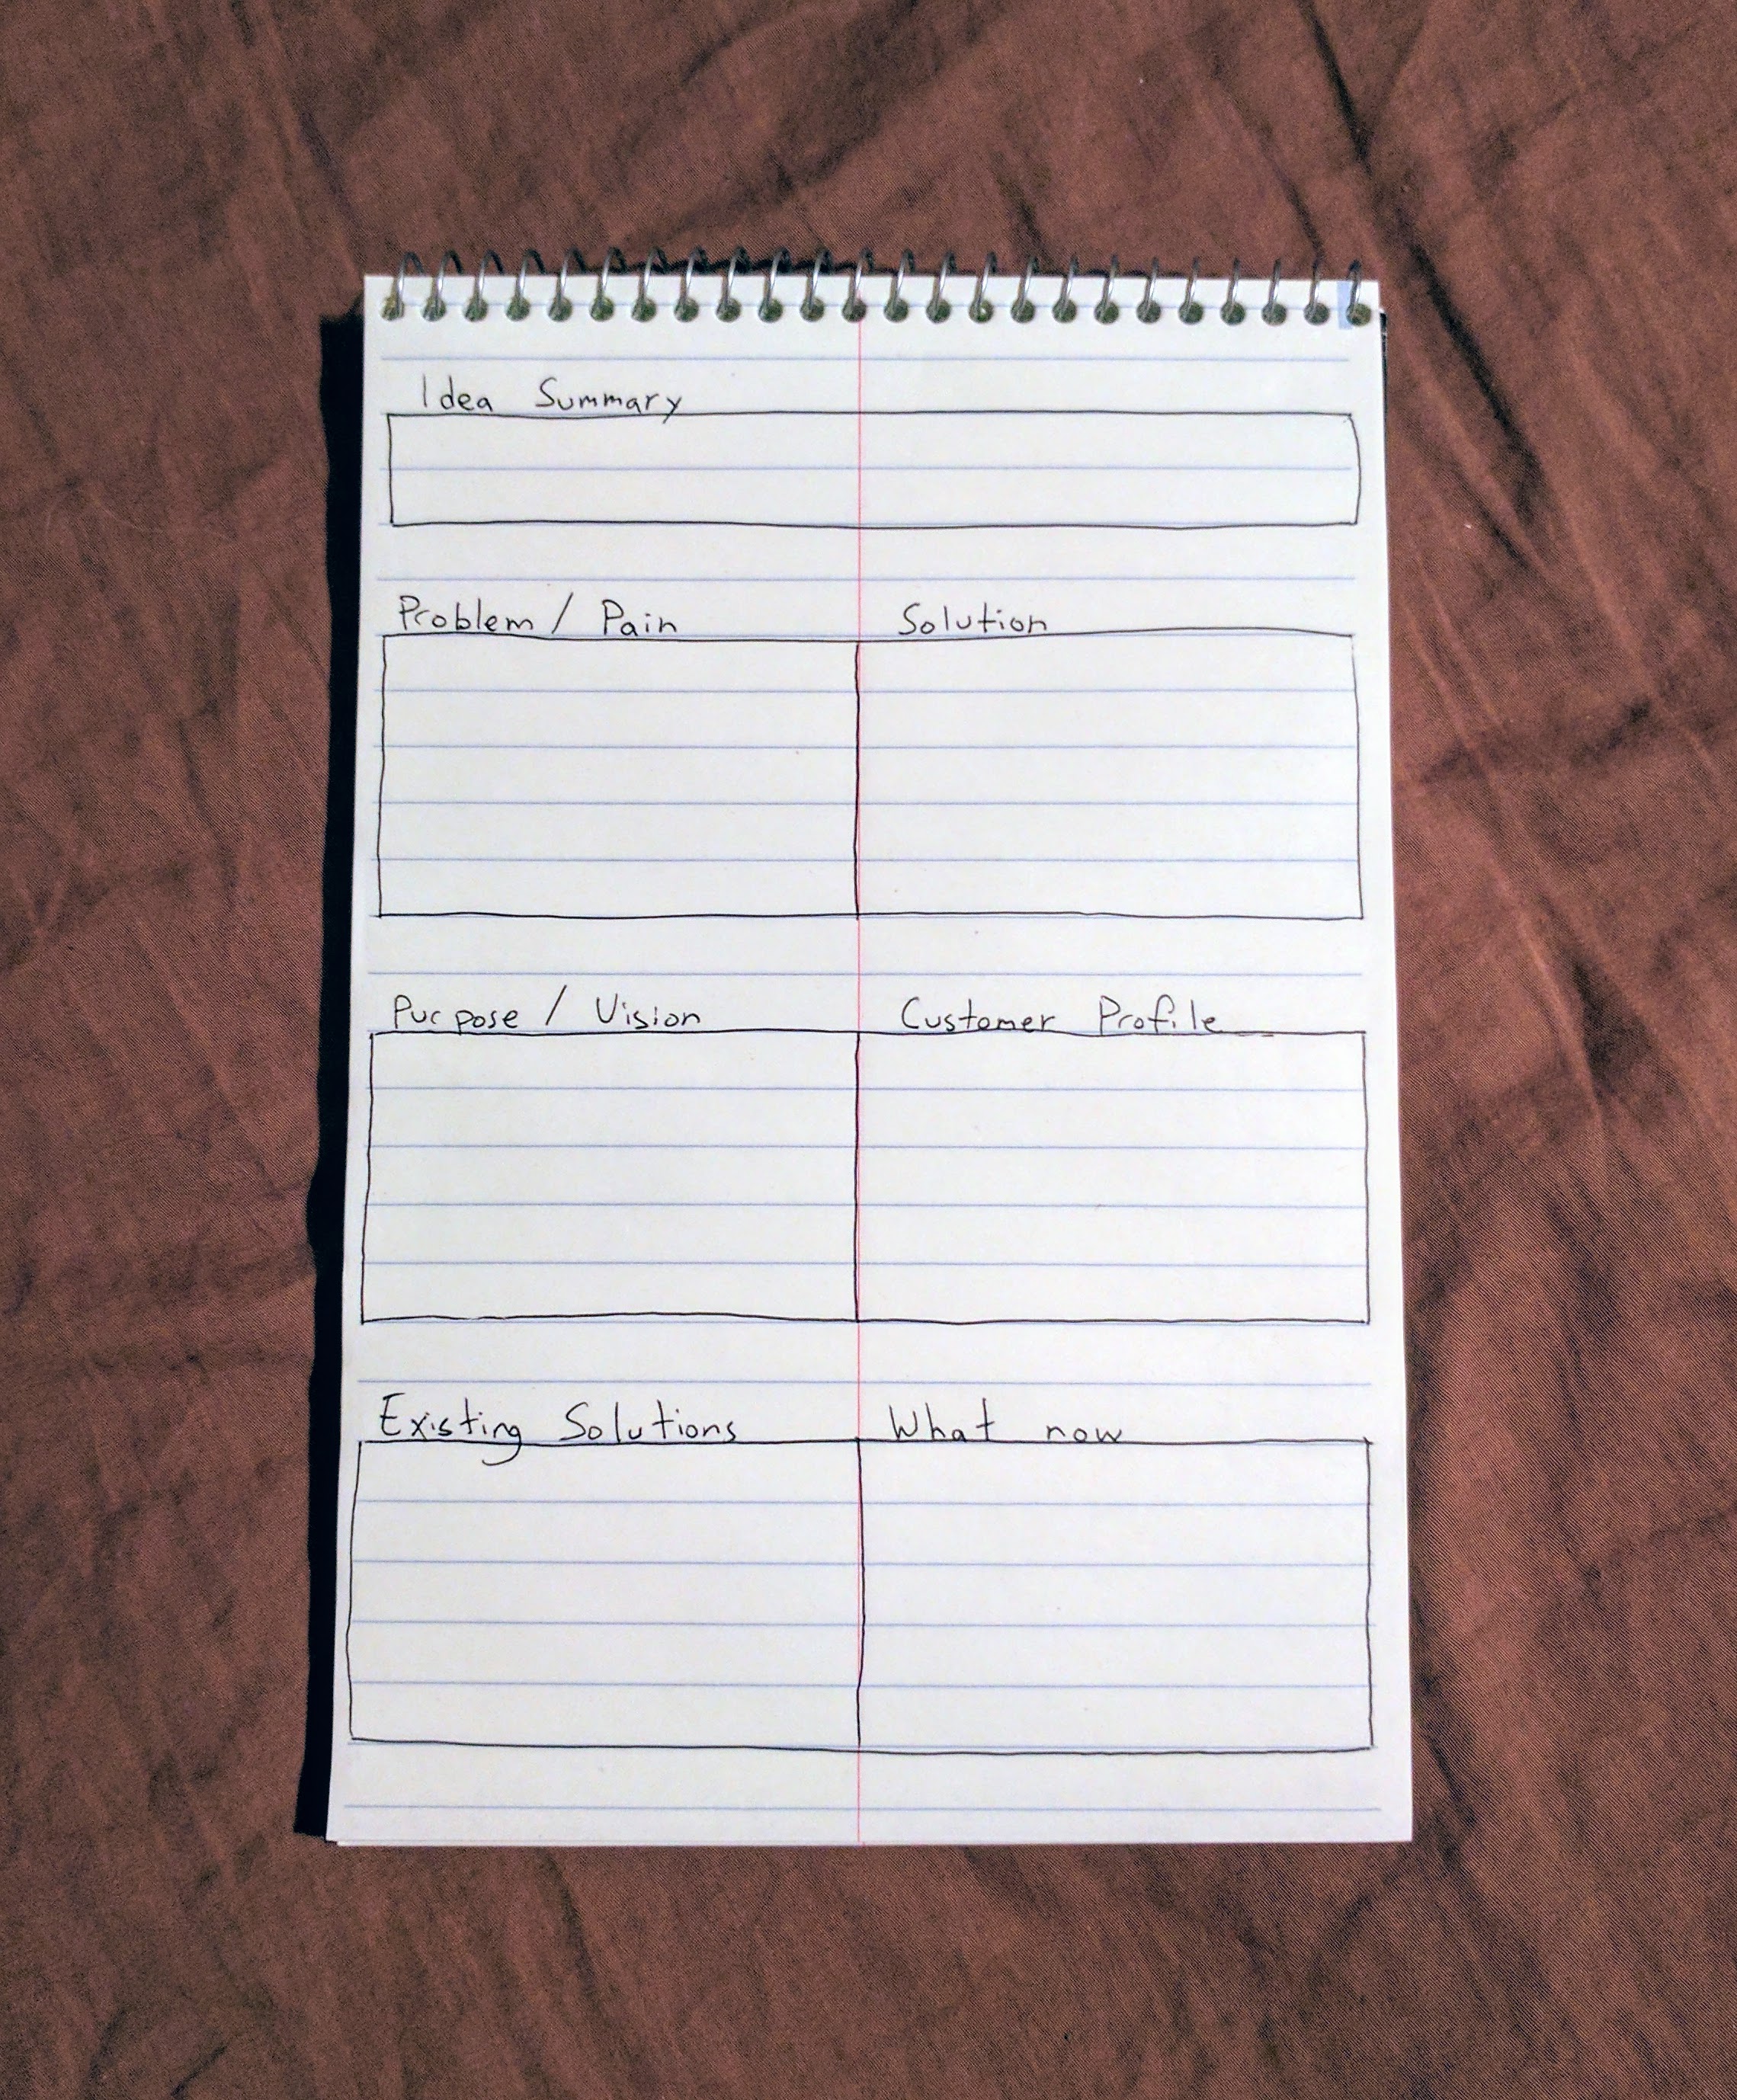 Idea Summary
Problem / Pain Solution
Purpose / Vision Customer Profile
Existing Solutions What now